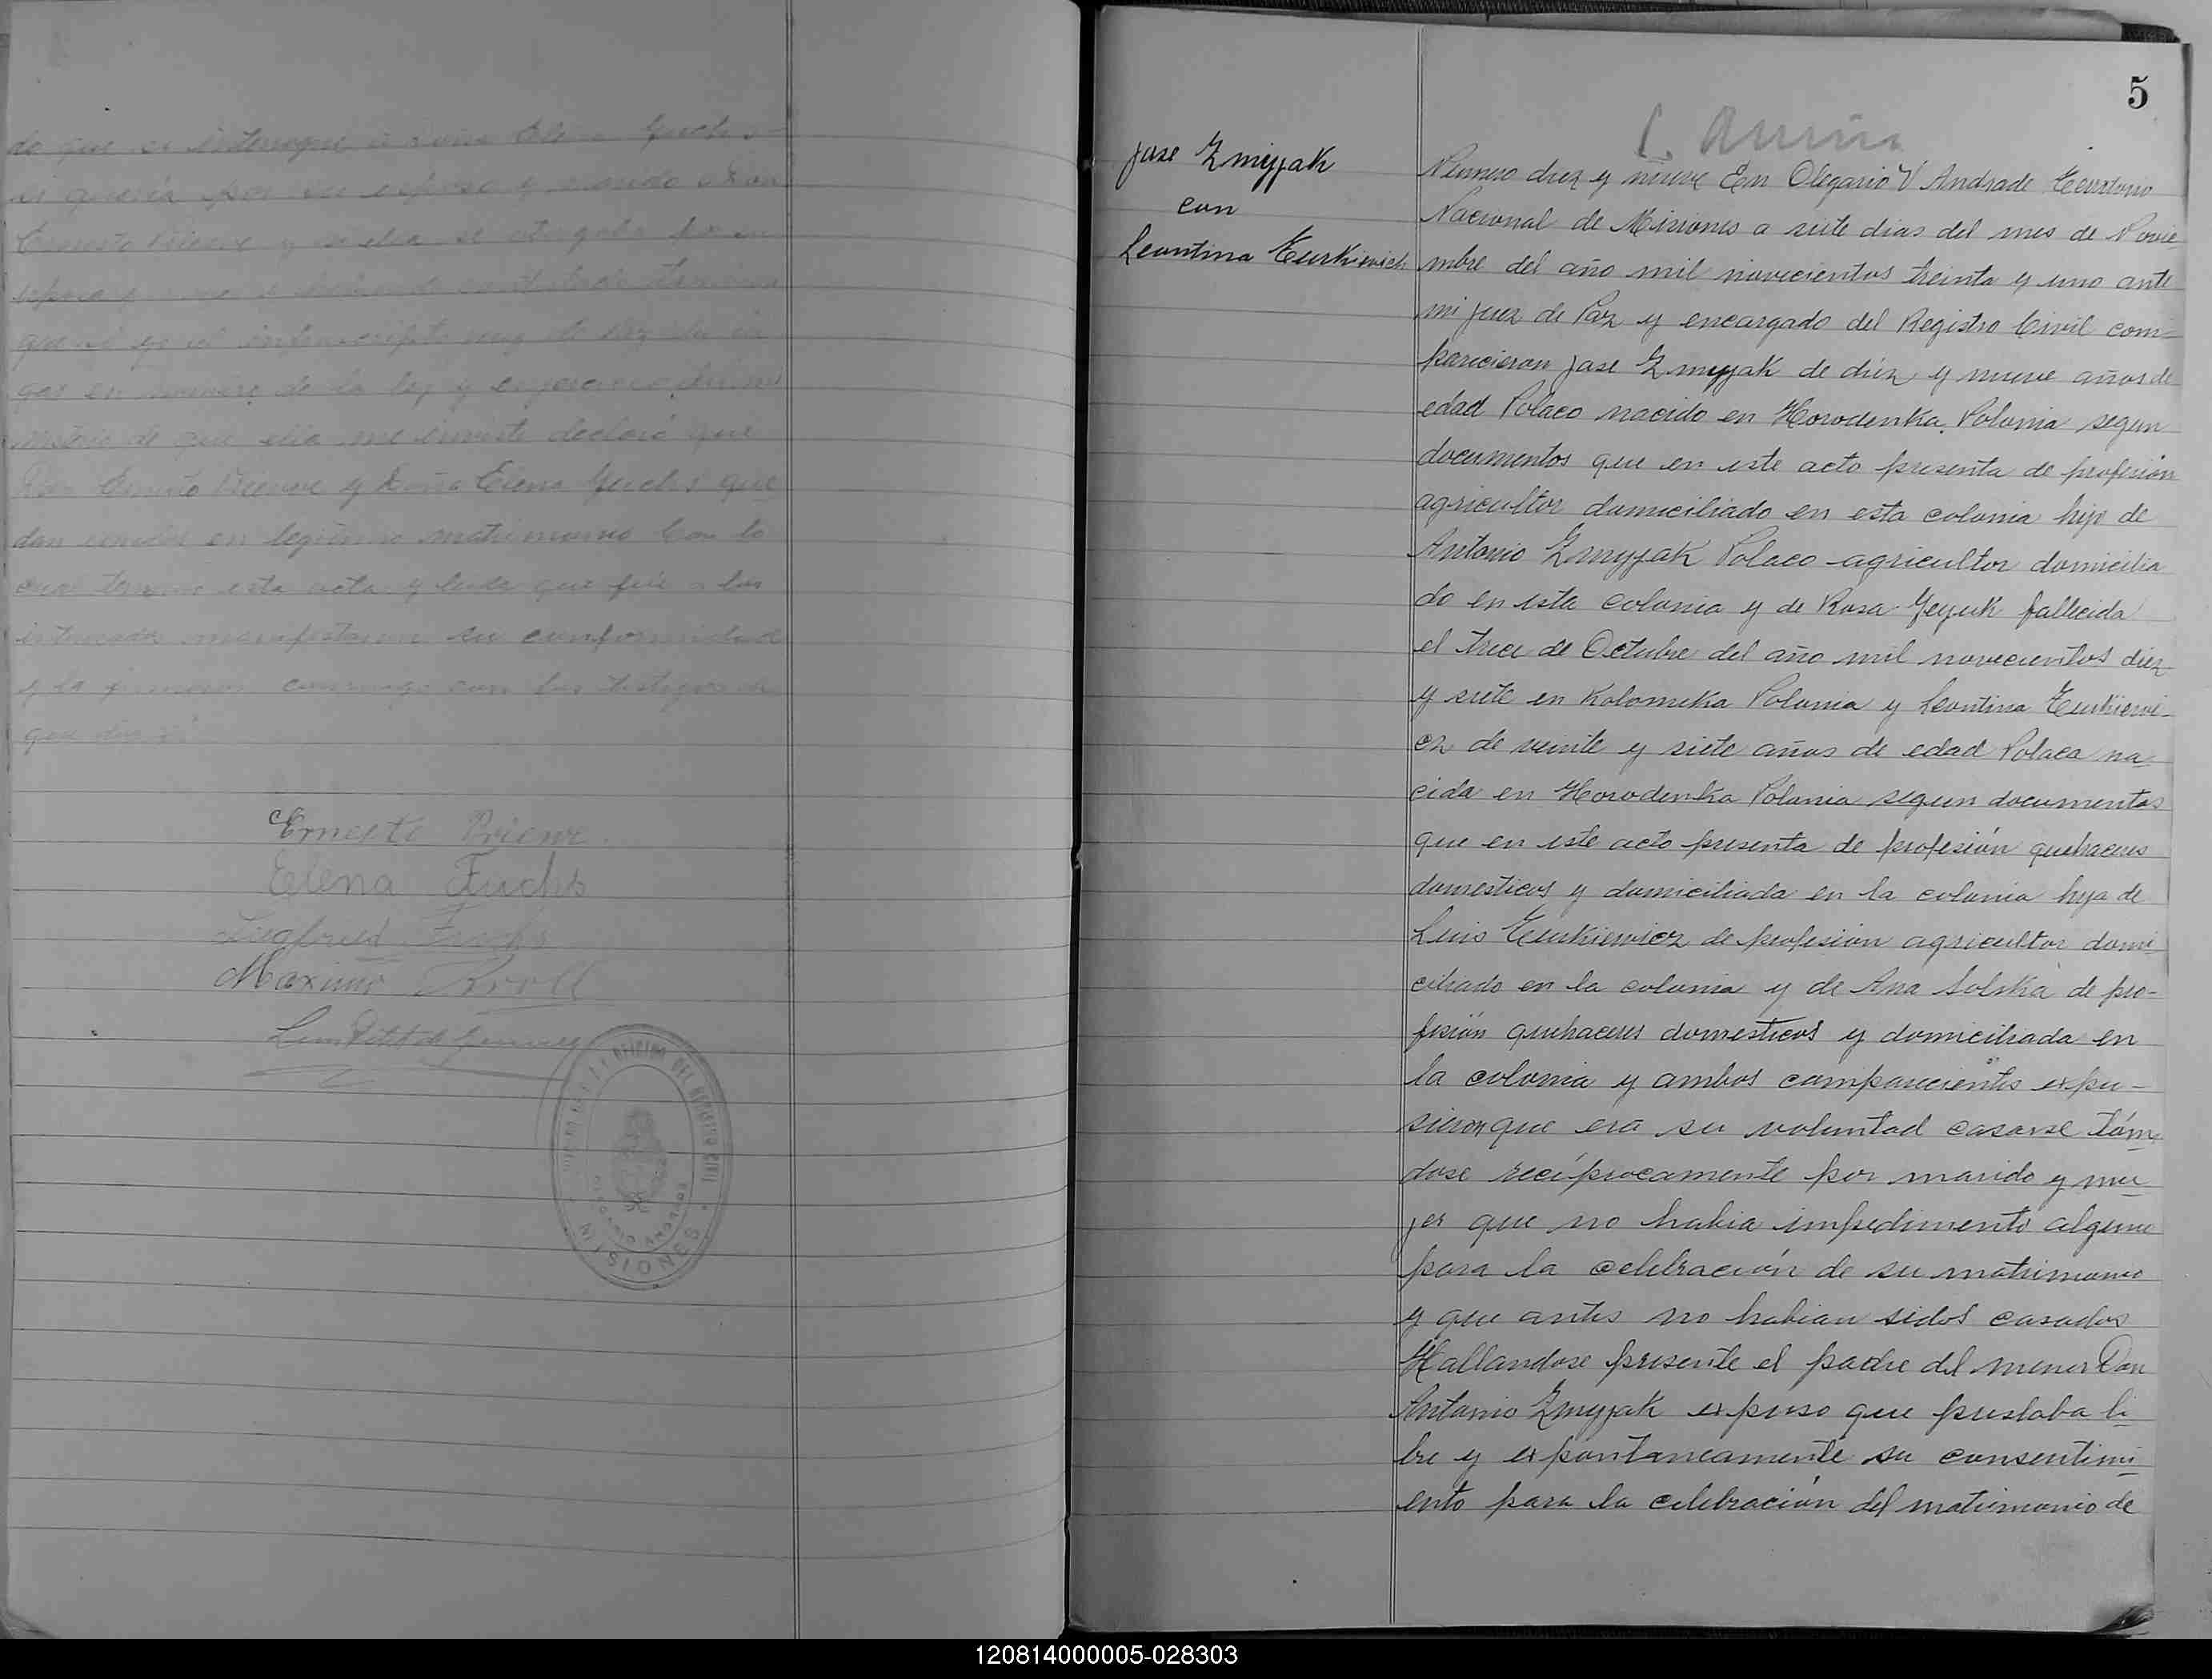 do que se interrogue a Doña Elena Fuchs
si quería por su esposo y marido a Don
Ernesto Priewe y si ella se otorgaba por su
esposa y
que
gar en nombre de la ley y
misterio de que ella me inviste declaré que
Don Ernesto Priewe y Doña Elena Fuchs que
dan unidos en legitimo matrimonio Con lo
cual termino esta acta y leida que fué a los
interesados manifestaron su conformidad
y la firmaron conmigo con los testigos de
que doy fé
Ernesto Priewe
Elena Fuchs
Siegfried Fuchs
Maximo Kroll
OFICINA DEL REGISTRO CIVIL
OLEGARIO ANDRADE
MISIONES
5
Jose Zmyjak
con
Leontina Turkievich
Numero diez y nueve En Olegario V Andrade Territorio
Nacional de Misiones a siete dias del mes de Novie
mbre del año mil novecientos treinta y uno ante
mi Juez de Paz y encargado del Registro Civil com-
parecieron Jose Zmyjak de diez y nueve años de
edad Polaco nacido en Horodenka Polonia segun
documentos que en este acto presenta de profesión
agricultor domiciliado en esta colonia hijo de
Antonio Zmyjak Polaco agricultor domicilia
do en esta colonia y de Rosa Yeyuk fallecida
el trece de Octubre del año mil novecientos diez
y siete en Kolomeka Polonia y Leontina Turkiewi-
cz de veinte y siete años de edad Polaca na-
cida en Horodenka Polonia segun documentos
que en este acto presenta de profesión quehaceres
domesticos y domiciliada en la colonia hija de
Luis Turkiewicz de profesion agricultor domi
ciliado en la colonia y de Ana Solska de pro-
fesión quehaceres domesticos y domiciliada en
la colonia y ambos comparecientes expu-
sieron que era su voluntad casarse tóm
dose recíprocamente por marido y mu-
jer que no habia impedimento alguno
para la celebración de su matrimonio
y que antes no habian sidos casados
Hallandose presente el padre del menor Don
Antonio Zmyjak expuso que prestaba li-
bre y expontaneamente su consentimi
ento para la celebración del matrimonio de
120814000005-028303